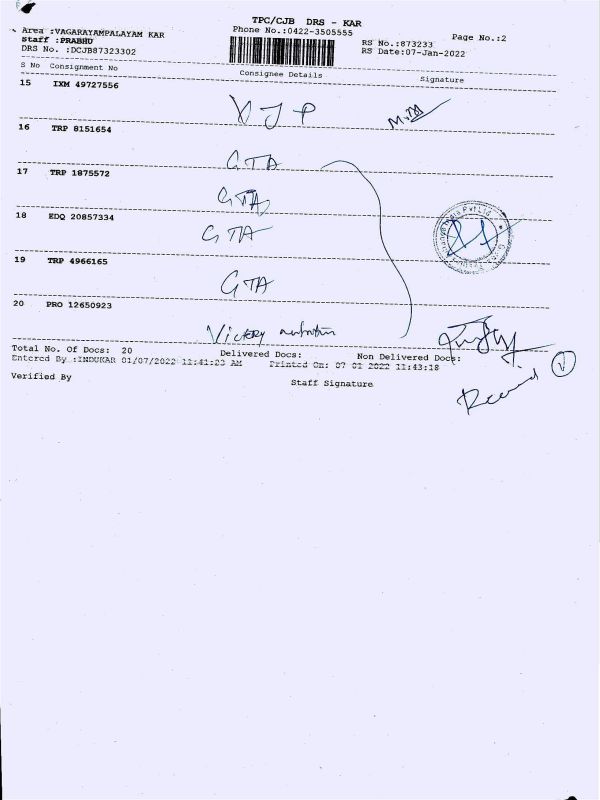 TPC/CJB DRS - KAR
Area :VAGARAYAMPALAYAM KAR Phone No.:0422-3505555 Page No.:2
Staff :PRABHU RS No.:873233
DRS No. :DCJB87323302 RS Date:07-Jan-2022
S No Consignment No Consignee Details Signature
15 IXM 49727556
VJP
16 TRP 8151654
GTA
17 TRP 1875572
GTA
18 EDQ 20857334
GTA
19 TRP 4966165
GTA
20 PRO 12650923
Victory nutrition
Total No. Of Docs: 20 Delivered Docs: Non Delivered Docs:
Entered By :INDUKAR 01/07/2022 11:41:23 AM Printed On: 07 01 2022 11:43:18
Verified By Staff Signature